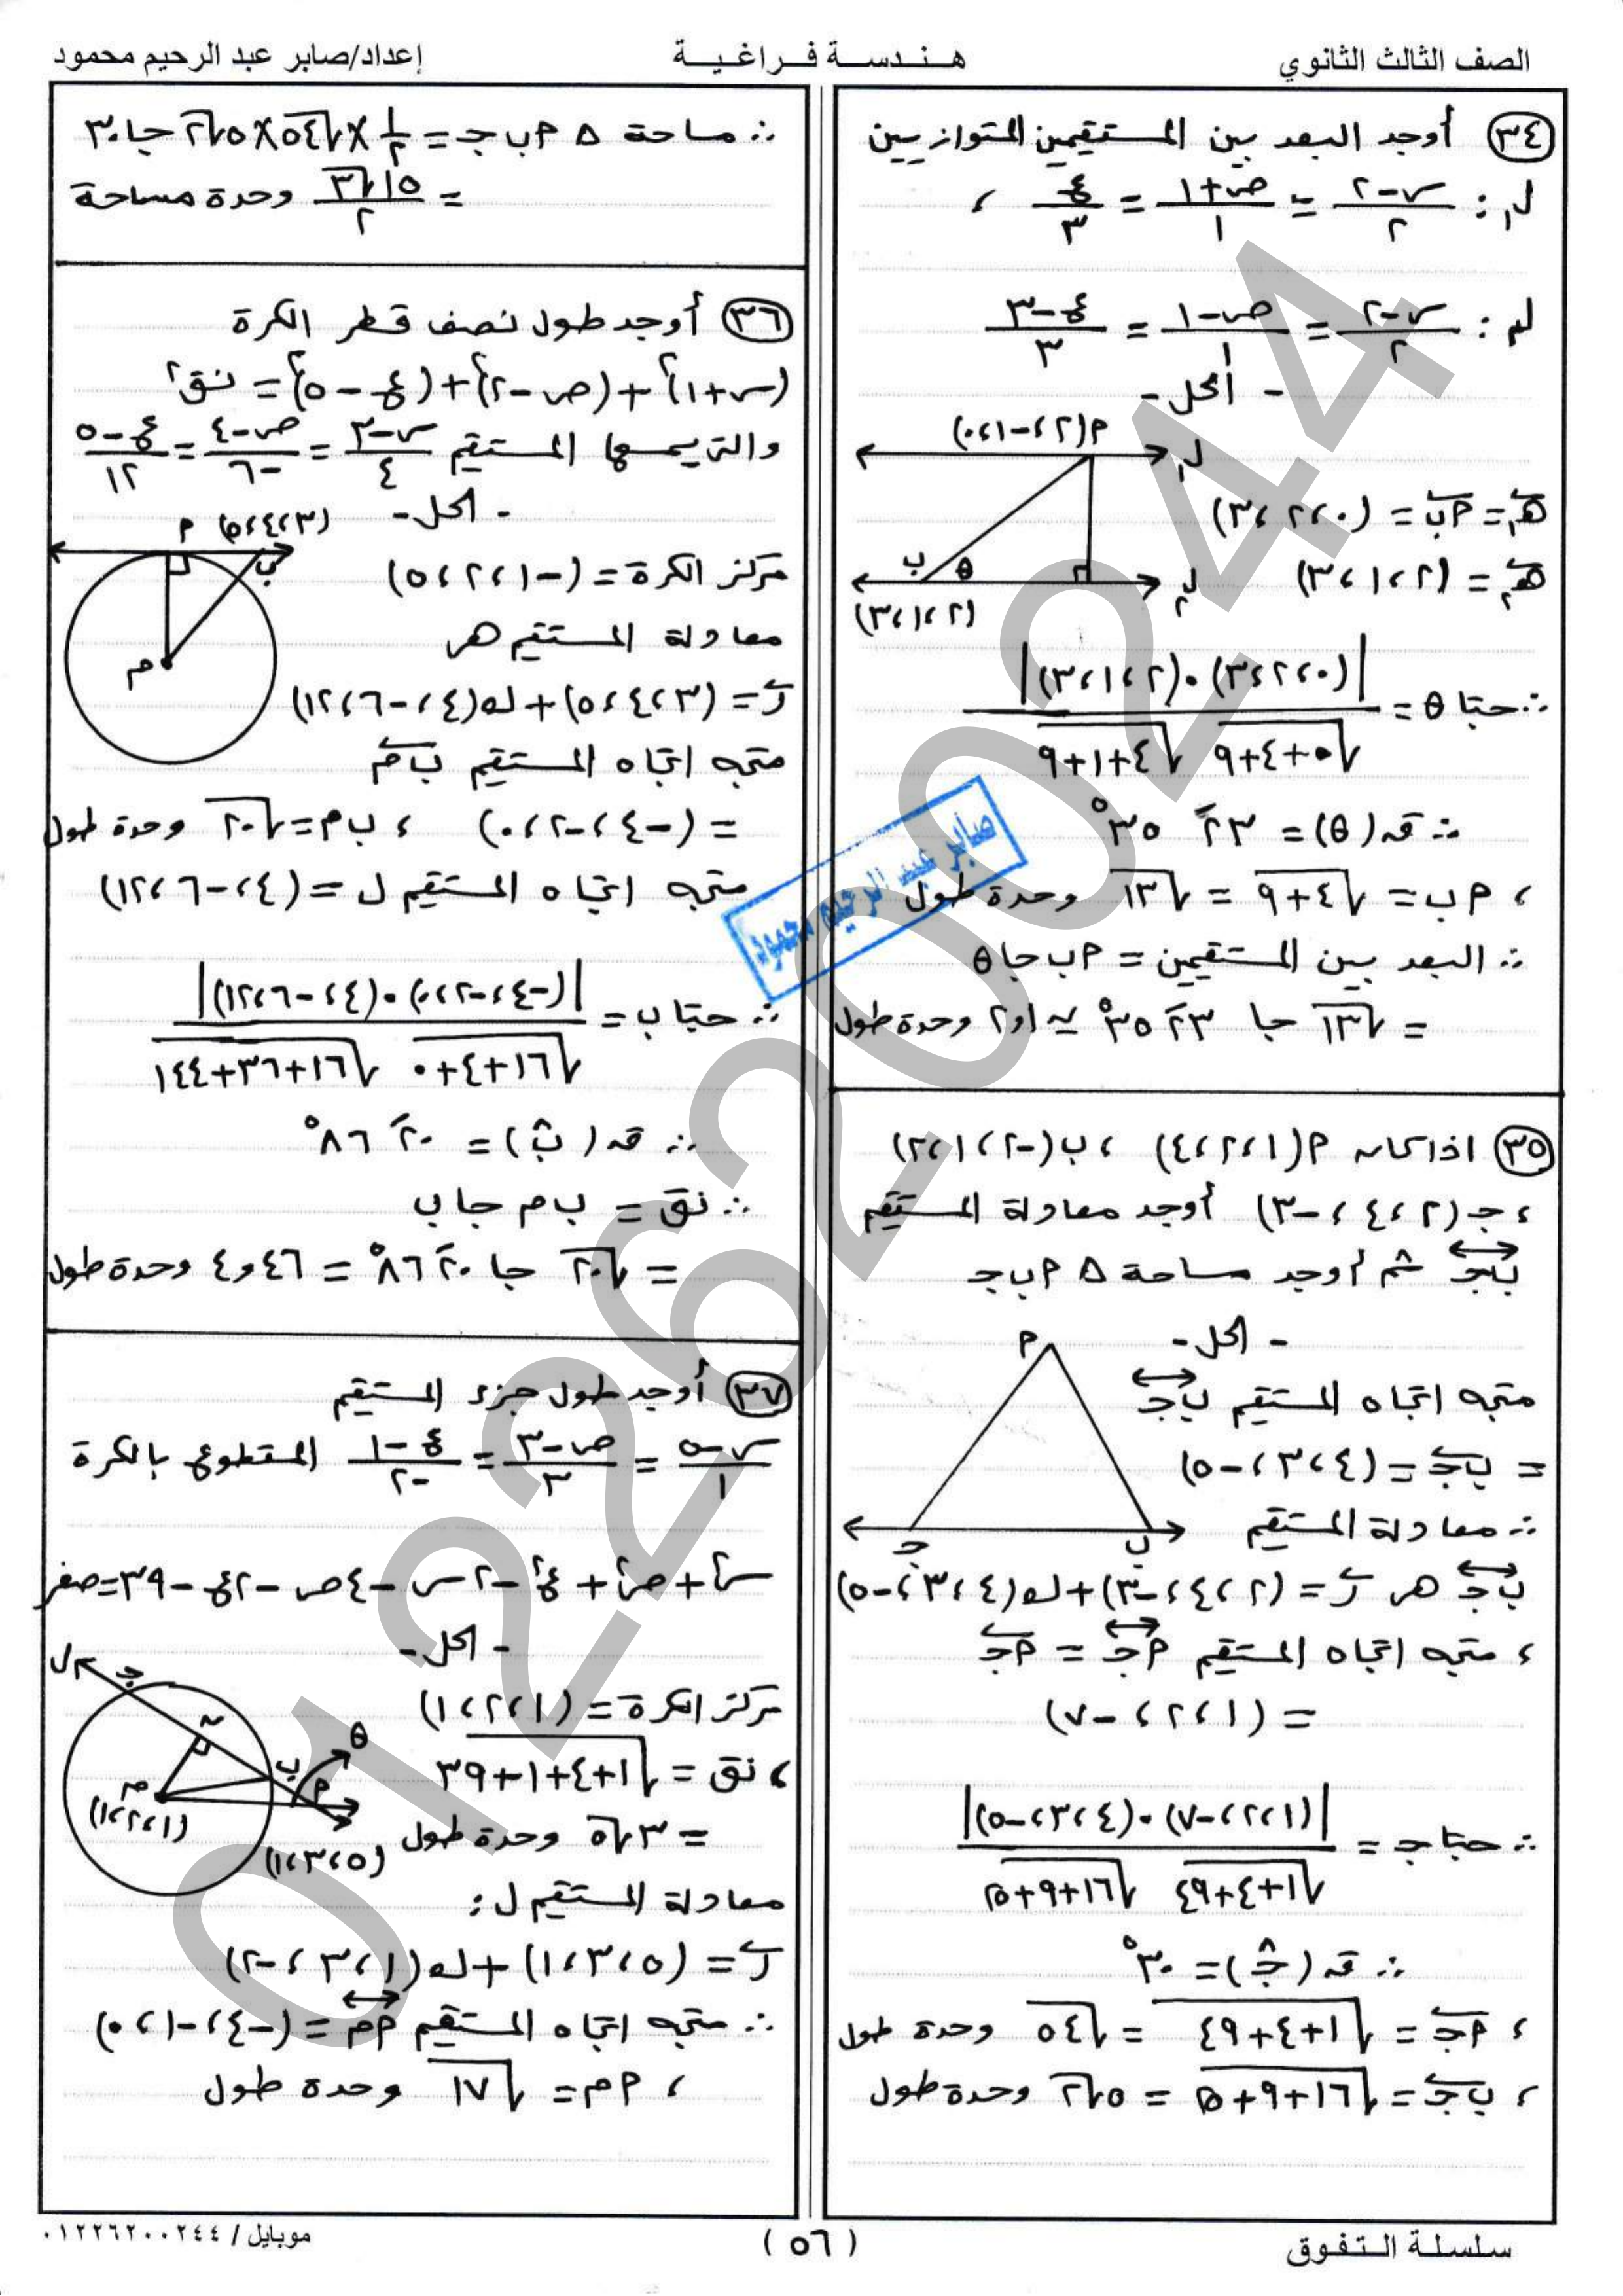 الصف الثالث الثانوي
هندسة فراغية
إعداد/صابر عبد الرحيم محمود
٣٤ أوجد البعد بين المستقيمين المتوازيين
ل١ : (س-٢)/٢ = (ص+١)/١ = ع/٣ ،
ل٢ : (س-٢)/٢ = (ص-١)/١ = (ع-٣)/٣
- الحل -
م(٢،-١،٠)
ل١
هـ١ = م ب = (٠،٢،٣)
هـ٢ = (٢،١،٣)
ب θ ل٢
(٢،١،٣)
∴ حتا θ = |(٠،٢،٣)·(٢،١،٣)| / √(٠+٤+٩) √(٤+١+٩)
∴ قه(θ) = ٢٣َ ٣٥°
، م ب = √(٤+٩) = √١٣ وحدة طول
∴ البعد بين المستقيمين = م ب جا θ
= √١٣ جا ٢٣َ ٣٥° ≃ ٢,١ وحدة طول
٣٥ اذا كانه م(١،٢،٤) ، ب(-٢،١،٢)
، جـ(٢،٤،-٣) أوجد معادلة المستقيم
ب جـ ثم أوجد مساحة Δ م ب جـ
- الحل -
م
متجه اتجاه المستقيم ب جـ
= ب جـ = (٤،٣،-٥)
∴ معادلة المستقيم
جـ ب
ب جـ هر ر = (٢،٤،-٣)+ك(٤،٣،-٥)
، متجه اتجاه المستقيم م جـ = م جـ
= (١،٢،-٧)
∴ حتا جـ = |(١،٢،-٧)·(٤،٣،-٥)| / √(١+٤+٤٩) √(١٦+٩+٢٥)
∴ قه(جـ) = ٣٠°
، م جـ = √(١+٤+٤٩) = √٥٤ وحدة طول
، ب جـ = √(١٦+٩+٢٥) = ٥√٢ وحدة طول
∴ مساحة Δ م ب جـ = ١/٢ ×√٥٤×٥√٢ جا ٣٠
= ١٥√٣/٢ وحدة مساحة
٣٦ أوجد طول نصف قطر الكرة
(س+١)²+(ص-٢)²+(ع-٥)² = نق²
والتي يمسها المستقيم (س-٣)/٤ = (ص-٤)/-٦ = (ع-٥)/١٢
- الحل -
م (٣،٤،٥)
ب
مركز الكرة = (-١،٢،٥)
معادلة المستقيم هر
م
ر = (٣،٤،٥)+ك(٤،-٦،١٢)
متجه اتجاه المستقيم ب م
= (-٤،-٢،٠) ، ب م = √٢٠ وحدة طول
متجه اتجاه المستقيم ل = (٤،-٦،١٢)
∴ حتا ب = |(-٤،-٢،٠)·(٤،-٦،١٢)| / √(١٦+٤+٠) √(١٦+٣٦+١٤٤)
∴ قه(ب) = ٢٠َ ٨٦°
∴ نق = ب م جا ب
= √٢٠ جا ٢٠َ ٨٦° = ٤,٤٦ وحدة طول
٣٧ أوجد طول جزء المستقيم
(س-٥)/١ = (ص-٣)/٣ = (ع-١)/-٢ المقطوع بالكرة
س²+ص²+ع²-٢س-٤ص-٢ع-٣٩=صفر
- الحل -
ل جـ
مركز الكرة = (١،٢،١)
ن θ ب م
م (١،٢،١)
، نق = √(١+٤+١+٣٩)
= ٣√٥ وحدة طول
(٥،٣،١)
معادلة المستقيم ل :
ر = (٥،٣،١)+ك(١،٣،-٢)
∴ متجه اتجاه المستقيم م م = (-٤،-١،٠)
، م م = √١٧ وحدة طول
صابر عبد الرحيم محمود
01226200244
سلسلة التفوق
(٥٦)
موبايل / ٠١٢٢٦٢٠٠٢٤٤